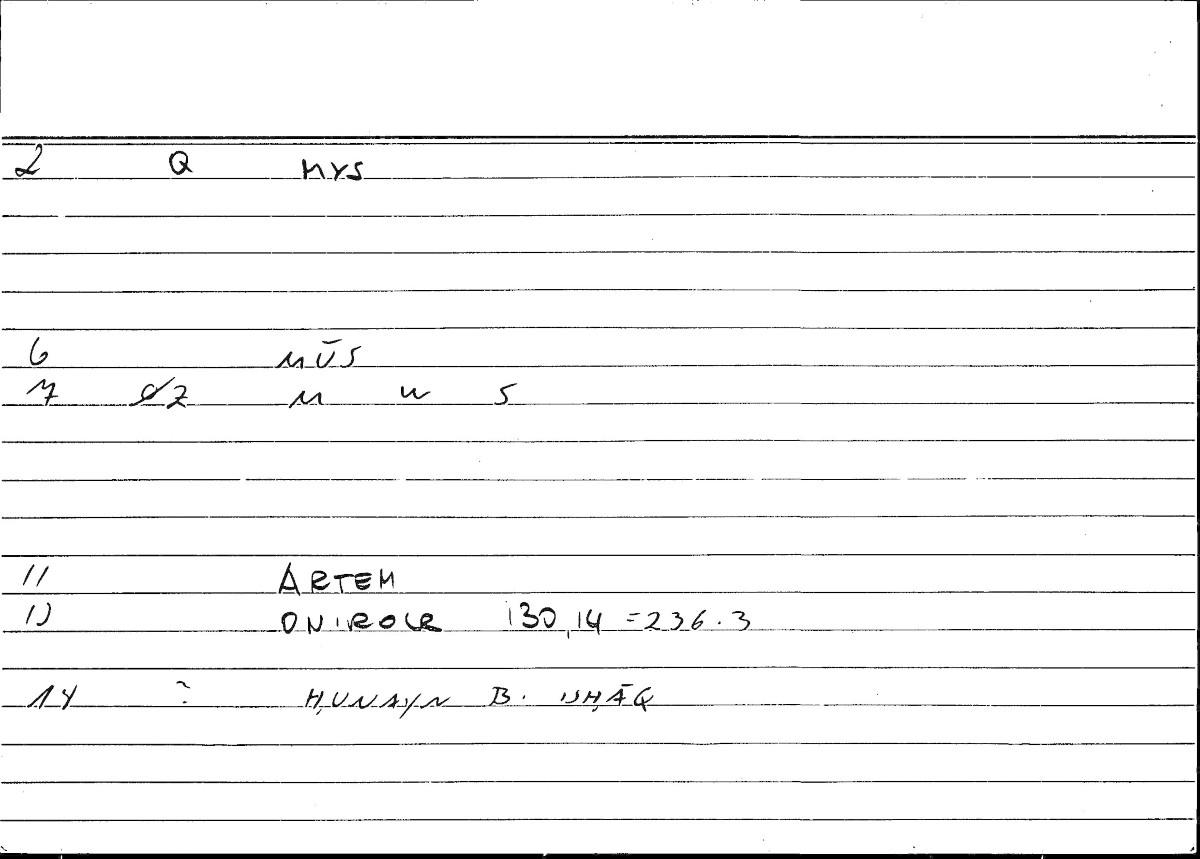 2 Q MYS
6 MŪS
7 Z M W S
11 ARTEM
ONIROCR 130,14 = 236.3
14 ? ḤUNAYN B. ISḤĀQ